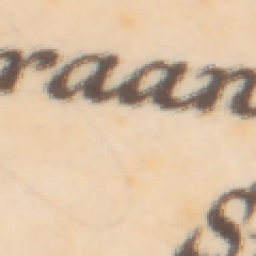 raan
S